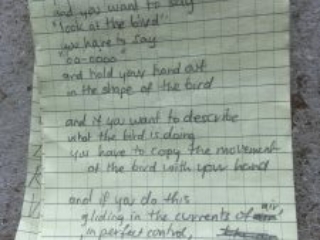 and you want to say
"look at the bird"
we have to say
"oo-oooo"
and hold your hand out
in the shape of the bird
and if you want to describe
what the bird is doing
you have to copy the movement
of the bird with your hand
and if you do this
gliding in the currents of air,
in perfect control,